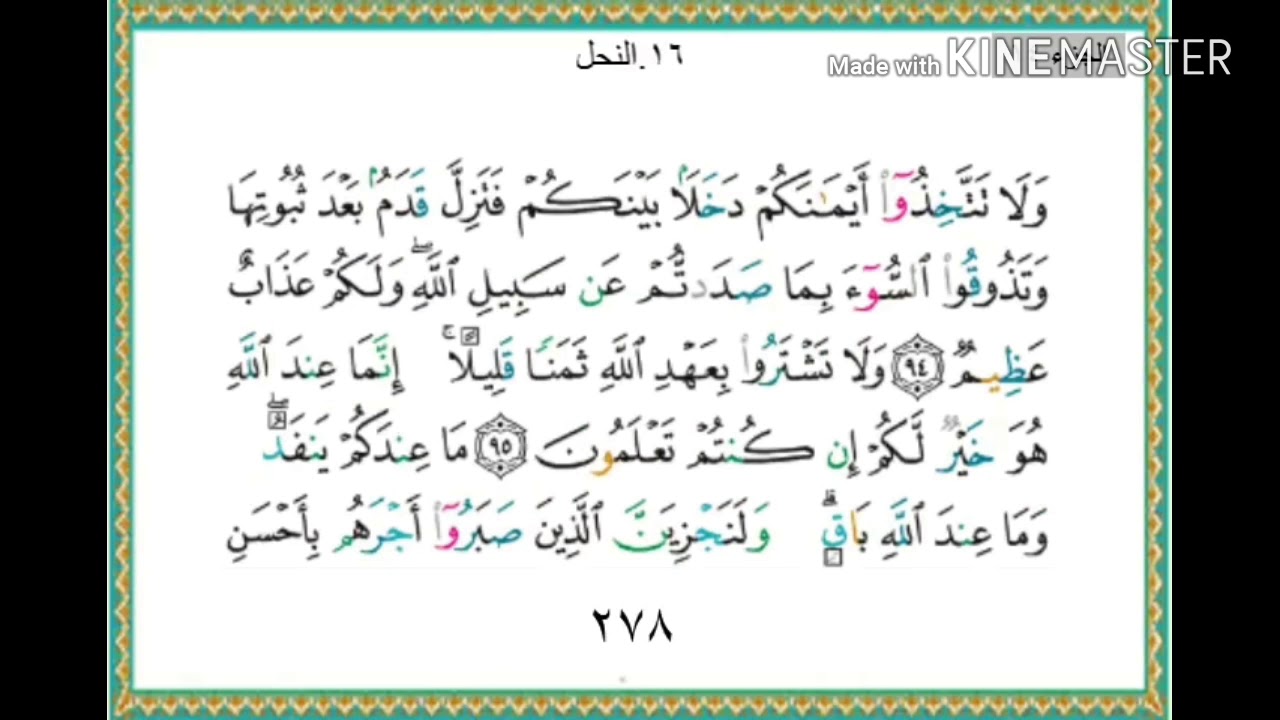 ١٦.النحل
Made with KINEMASTER
وَلَا تَتَّخِذُوٓا۟ أَيْمَـٰنَكُمْ دَخَلًۢا بَيْنَكُمْ فَتَزِلَّ قَدَمٌۢ بَعْدَ ثُبُوتِهَا
وَتَذُوقُوا۟ ٱلسُّوٓءَ بِمَا صَدَدتُّمْ عَن سَبِيلِ ٱللَّهِ ۖ وَلَكُمْ عَذَابٌ
عَظِيمٌ ٩٤ وَلَا تَشْتَرُوا۟ بِعَهْدِ ٱللَّهِ ثَمَنًا قَلِيلًا ۚ إِنَّمَا عِندَ ٱللَّهِ
هُوَ خَيْرٌ لَّكُمْ إِن كُنتُمْ تَعْلَمُونَ ٩٥ مَا عِندَكُمْ يَنفَدُ ۖ
وَمَا عِندَ ٱللَّهِ بَاقٍ ۗ وَلَنَجْزِيَنَّ ٱلَّذِينَ صَبَرُوٓا۟ أَجْرَهُم بِأَحْسَنِ
٢٧٨